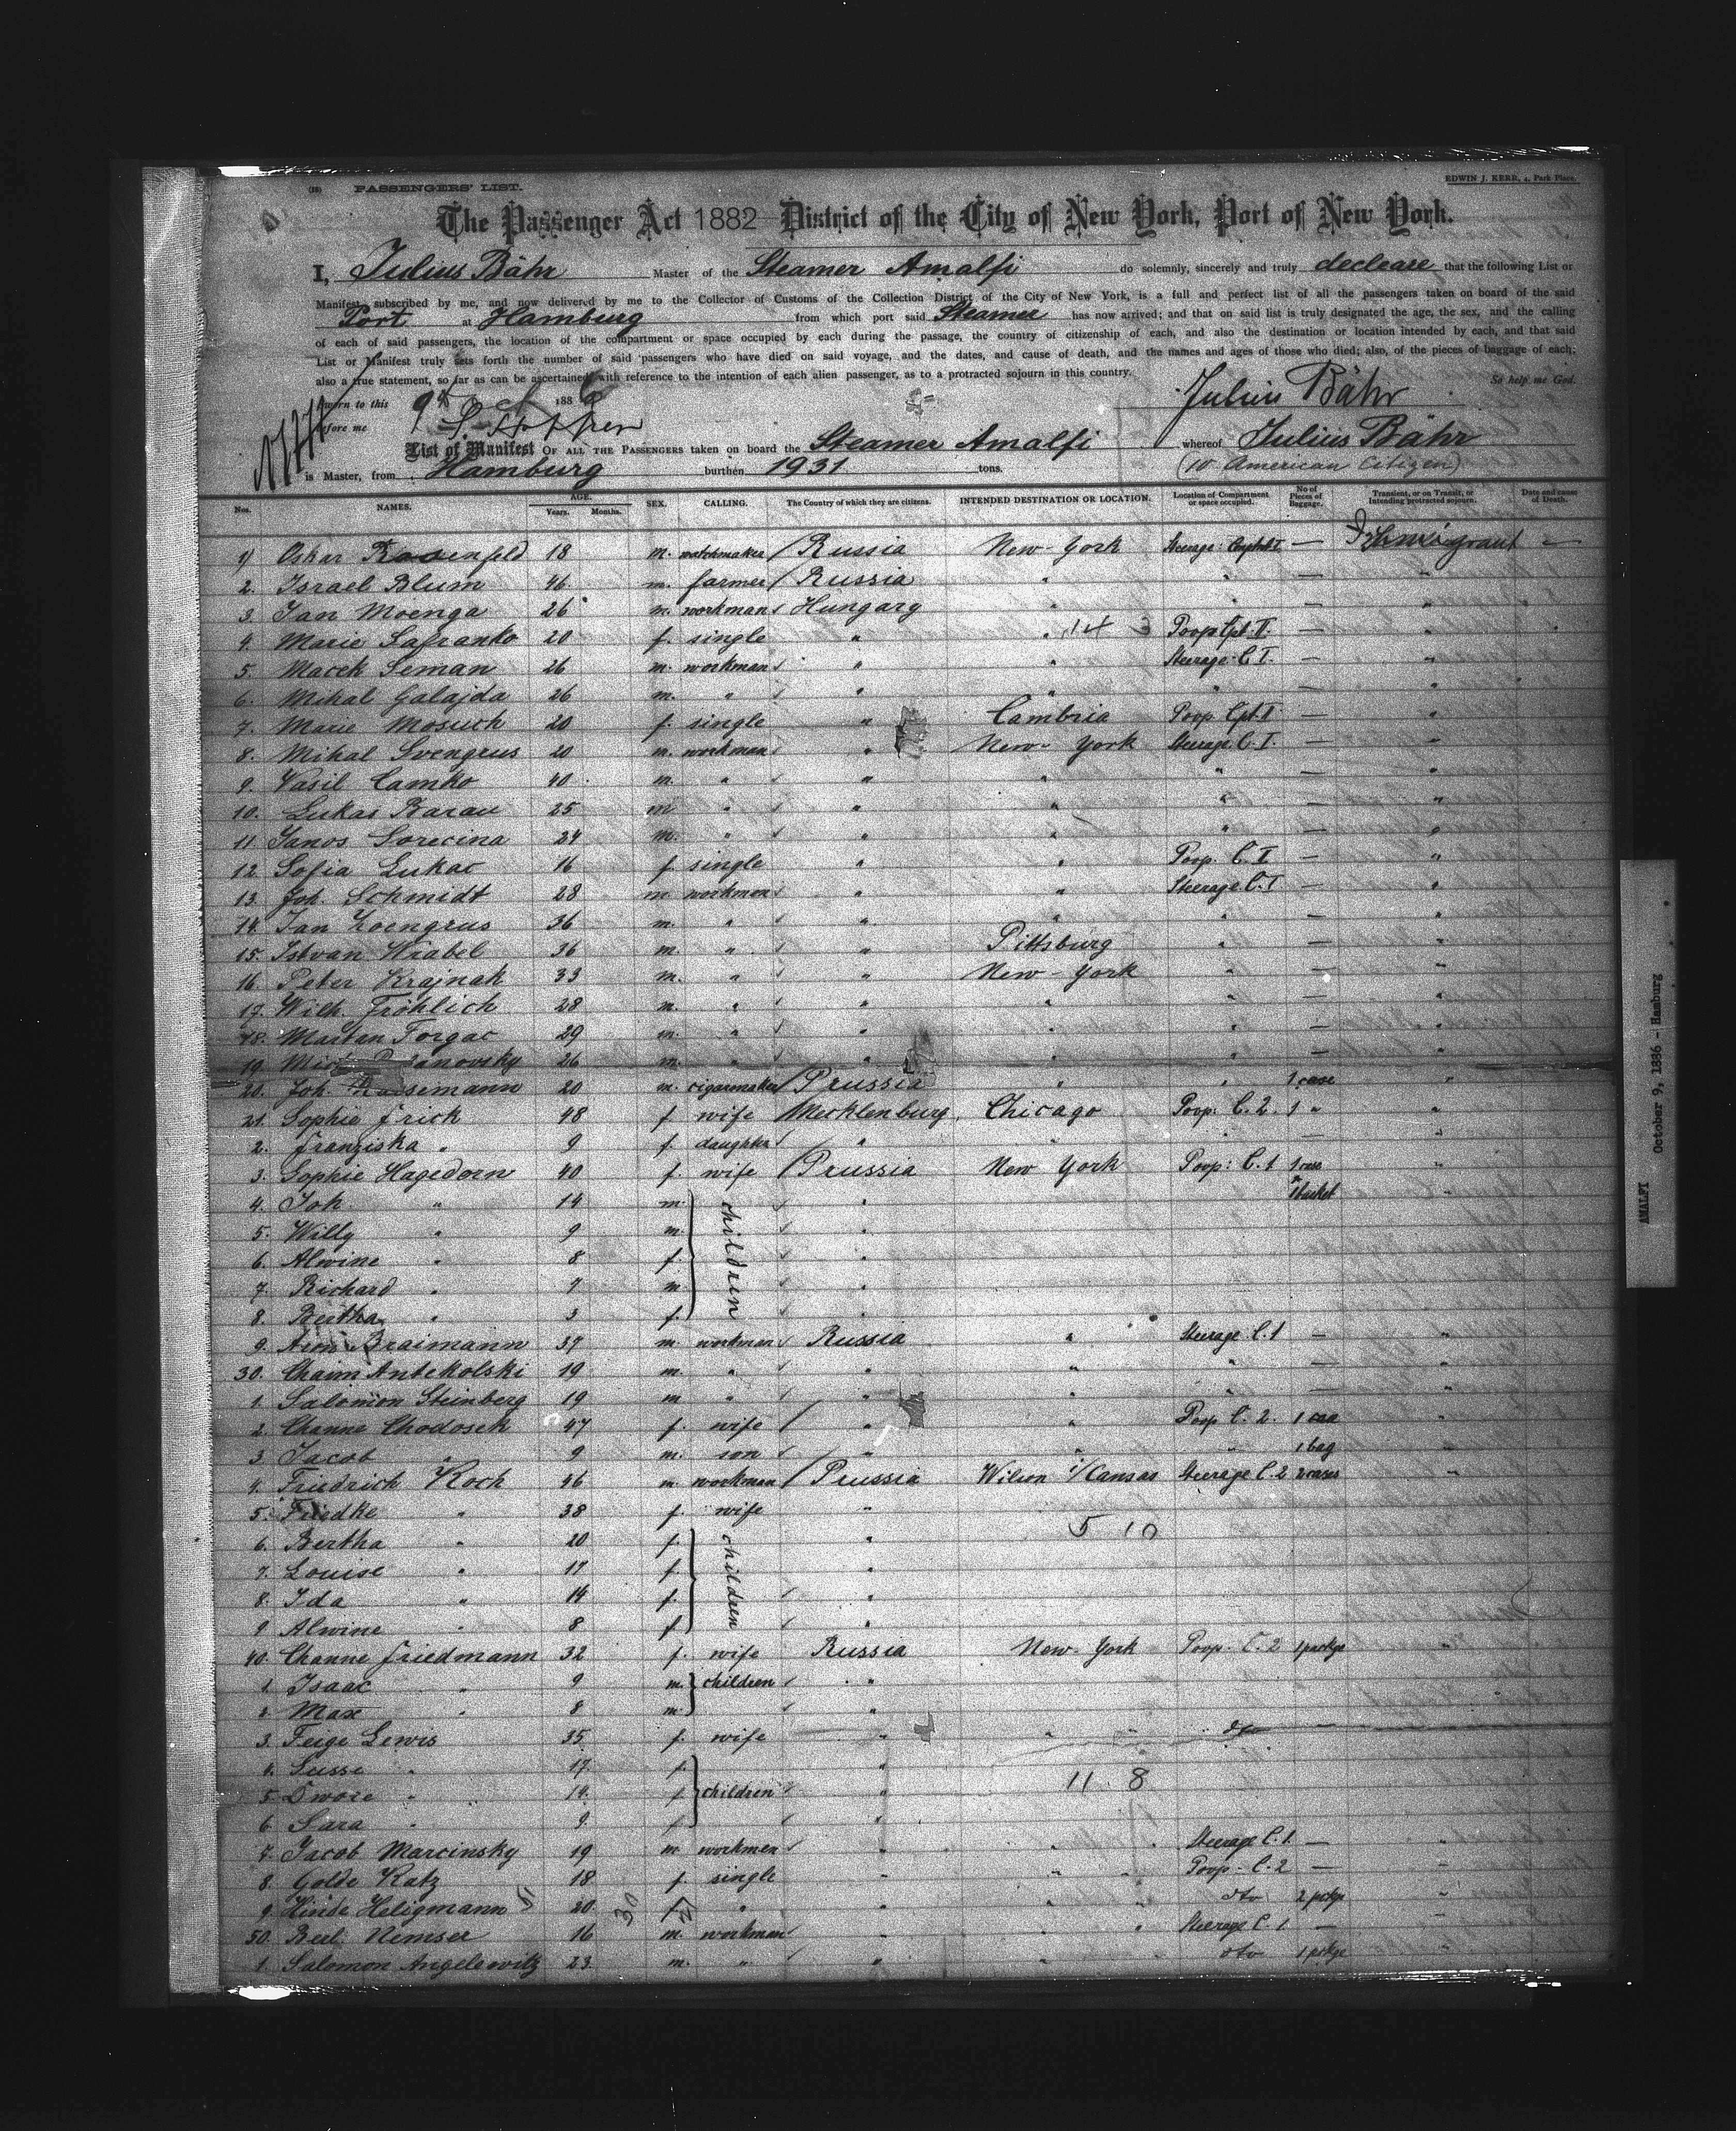 (18) PASSENGERS' LIST.
EDWIN J. KERR, 4, Park Place.
The Passenger Act 1882 District of the City of New York, Port of New York.
I, Julius Bähr Master of the Steamer Amalfi do solemnly, sincerely and truly declease that the following List or
Manifest, subscribed by me, and now delivered by me to the Collector of Customs of the Collection District of the City of New York, is a full and perfect list of all the passengers taken on board of the said
Port at Hamburg from which port said Steamer has now arrived; and that on said list is truly designated the age, the sex, and the calling
of each of said passengers, the location of the compartment or space occupied by each during the passage, the country of citizenship of each, and also the destination or location intended by each, and that said
List or Manifest truly sets forth the number of said passengers who have died on said voyage, and the dates, and cause of death, and the names and ages of those who died; also, of the pieces of baggage of each;
also a true statement, so far as can be ascertained with reference to the intention of each alien passenger, as to a protracted sojourn in this country.
So help me God.
Sworn to this 9th Oct 1886 Julius Bähr
before me
List or Manifest OF ALL THE PASSENGERS taken on board the Steamer Amalfi whereof Julius Bähr
is Master, from Hamburg burthen 1931 tons. (10 American Citizen)
Nos. NAMES. AGE. Years. Months. SEX. CALLING. The Country of which they are citizens. INTENDED DESTINATION OR LOCATION. Location of Compartment or space occupied. No of Pieces of Baggage. Transient, or on Transit, or Intending protracted sojourn. Date and cause of Death.
1) Oskar Rosenfeld 18 m. watchmaker / Russia New-York Steerage —
2. Israel Blum 46 m. farmer / Russia " " — "
3. Jan Moenga 26 m. workman Hungary " " — "
4. Marie Safranko 20 f. single " " 14 3 Poop Cpt. II. — "
5. Macek Seman 26 m. workman " " Steerage C. I. — "
6. Mihal Galajda 26 m. " " " " — "
7. Marie Mosuch 20 f. single " Cambria Poop Cpt. II — "
8. Mihal Svengrus 20 m. workman " New-York Steerage C. I. — "
9. Vasil Camko 40 m. " " " " — "
10. Lukas Barau 25 m " " " " — "
11 Janos Sorecina 24 m. " " " " — "
12. Sofia Lukac 16 f. single " " Poop. C. I — "
13. Joh. Schmidt 28 m workman " " Steerage C. I — "
14. Jan Zoengrus 36 m. " " " " — "
15. Istvan Wrabel 36 m. " " Pittsburg " — "
16. Peter Krajnak 33 m. " " New-York " — "
17. Wilh. Fröhlich 28 m. " " " " — "
18. Martan Torgac 29 m. " " " " — "
19. 26 m. " " " " — "
20. Joh. 20 m. cigarmaker / Prussia " " 1 case "
21. Sophie Frick 48 f wife / Mecklenburg Chicago Poop: C. 2. 1 " "
2. Franziska " 9 f. daughter " " " — "
3. Sophie Hagedorn 40 f. wife / Prussia New York Poop: C. 1 1 case "
4. Joh. " 14 m. children " 1 basket "
5. Willy " 9 m. "
6. Alwine " 8 f. "
7. Richard " 7 m. "
8. Bertha " 3 f. "
9. Braimann 37 m workman Russia " Steerage C. 1 — "
30. Chaim Antekolski 19 m. " " " " — "
1. Salomon Steinberg 19 m " " " " — "
2. Channe Chodosch 47 f. wife / " " Poop C. 2. 1 case "
3 Jacob " 9 m. son " " " 1 bag
4. Friedrich Koch 46 m workman / Prussia Wilson i/Kansas Steerage C. 2 2 cases "
5. " 38 f. wife "
5 10
6. Bertha " 20 f. children "
7. Louise " 17 f. "
8. Ida " 14 f. "
9 Alwine " 8 f "
40. Channe Friedmann 32 f. wife Russia New-York Poop. C. 2 1 packge "
1. Isaac " 9 m. children "
2. Max " 8 m. "
3. Feige Lewis 35 f. wife " " " dto —
4. Susse " 17 f. children "
11 8
5. Dwore " 14. f "
6 Sara " 9. f "
7. Jacob Marcinsky 19 m workman " " Steerage C. 1. — "
8. Golde Katz 18 f. single " " Poop. C. 2 — "
9. Hinde Heligmann 20 30 f " " " dto 2 pckge "
50. Berl Nemser 16 m. workman " " Steerage C. 1. — "
1. Salomon Angelewitz 23 m. " " " dto 1 pckge "
AMALFI October 9, 1886 - Hamburg